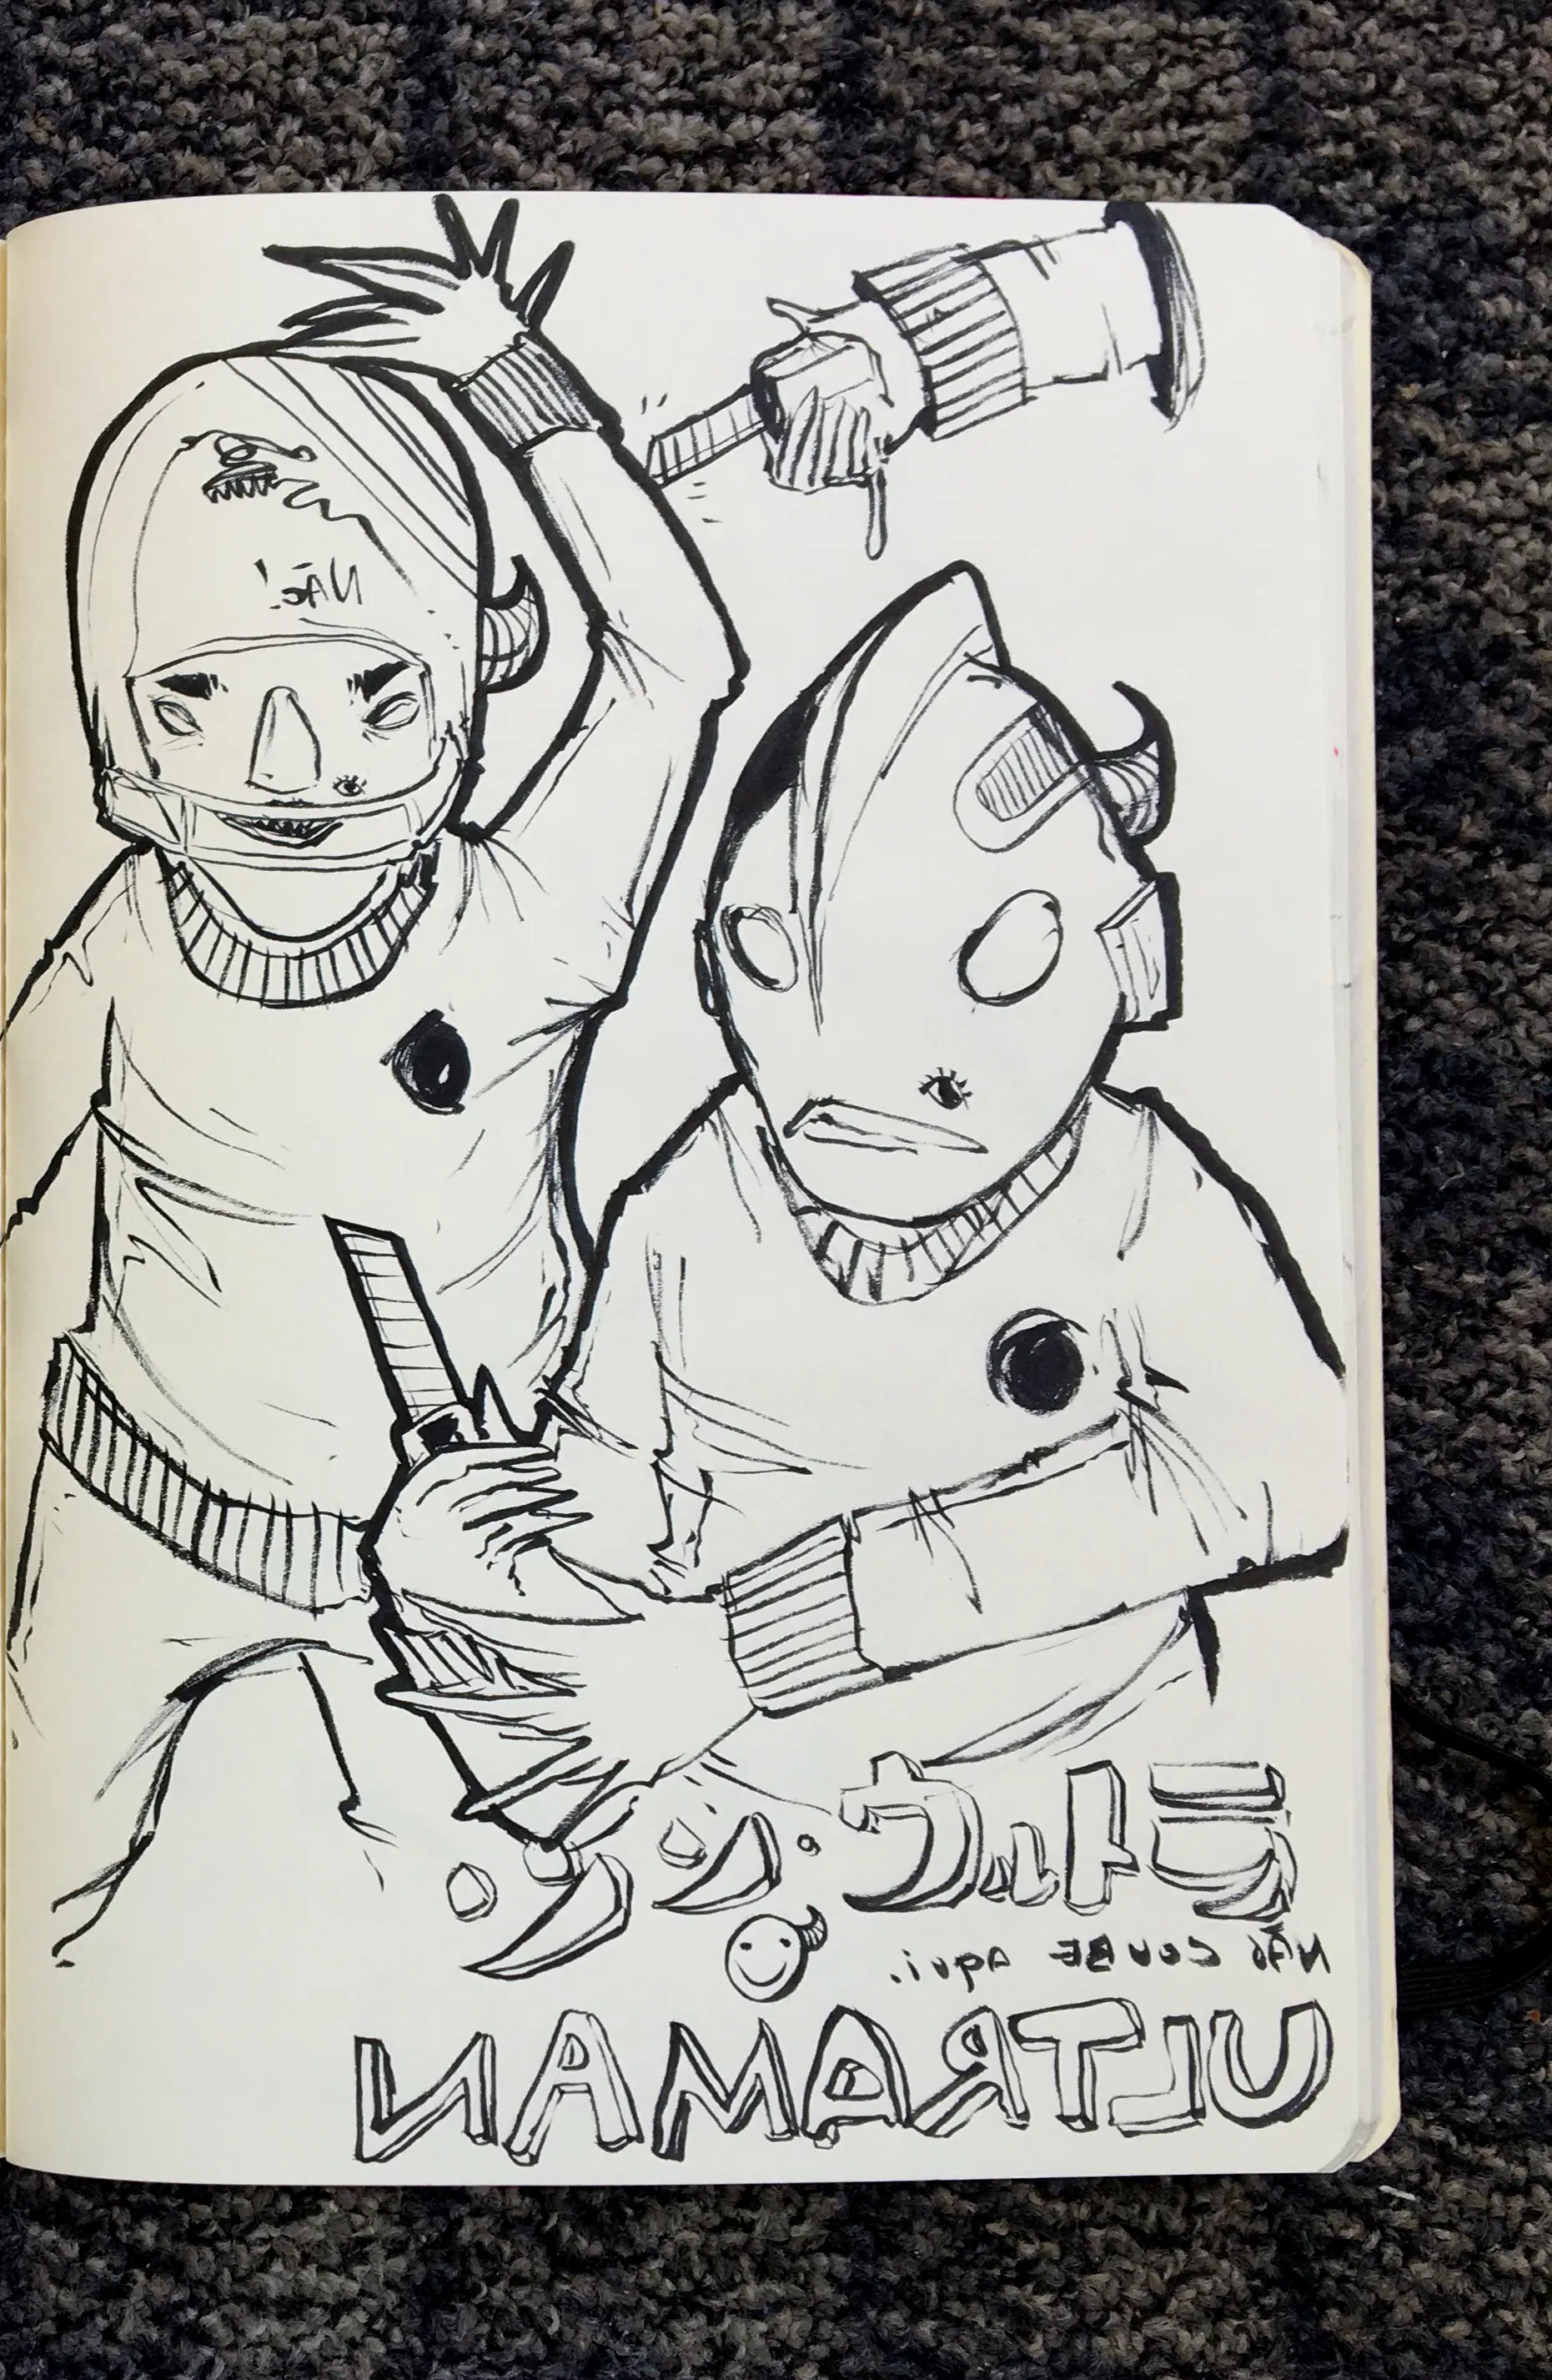 NÃo!
シン・ウルトラ
NÃO COUBE AQUI.
ULTRAMAN